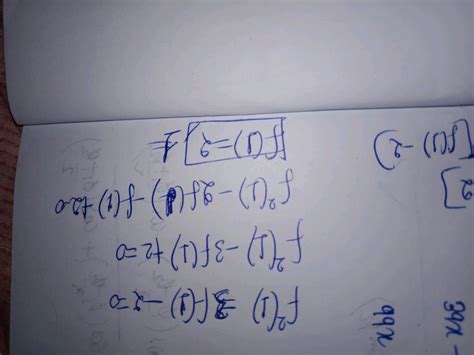 f²(1) -3f(1) -2=0
f²(1) -3f(1) +2=0
f²(1) -2f(1) - f(1) +2=0
f(1)=2
99x
39x -
2]
[f(1) -2)